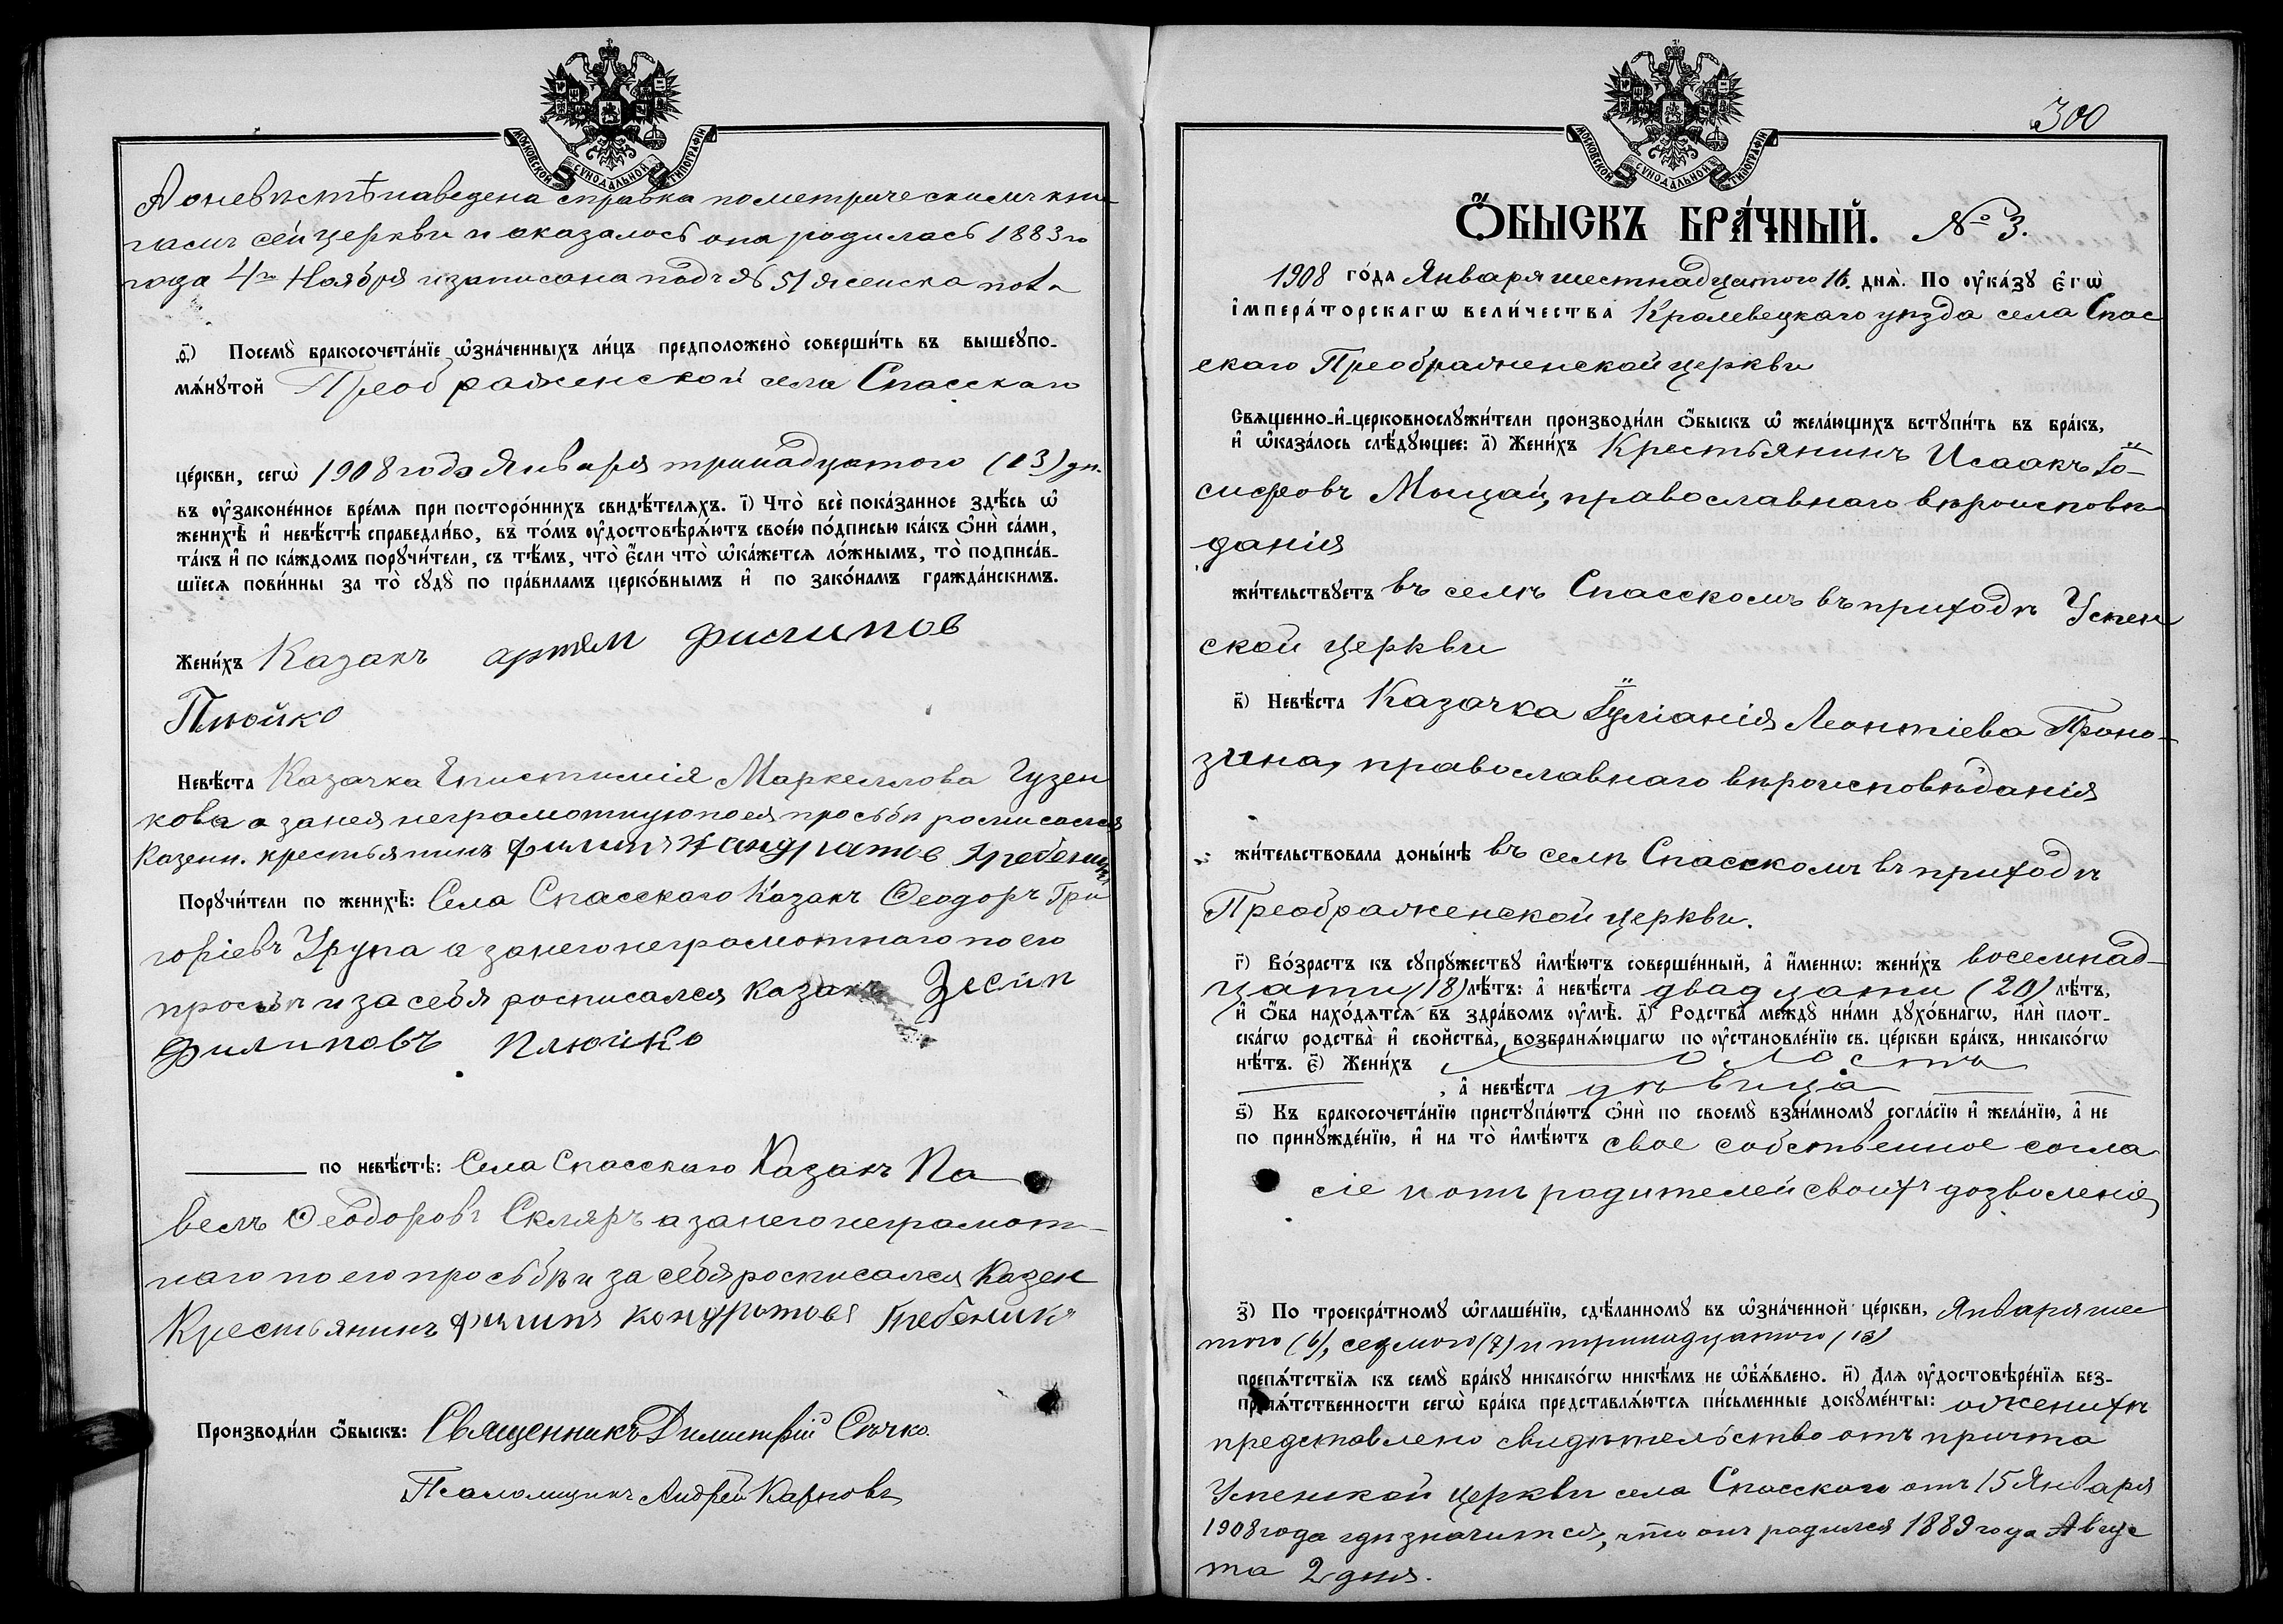 МОСКОВСКОЙ СѴНОДАЛЬНОЙ ТИПОГРАФІИ
А о невѣстѣ наведена справка по метрическимъ кни-
гамъ сей церкви и оказалось она родилась 1883 го
года 4го Ноября и записана подъ № 51 женска пола
ѳ҃) Посемꙋ̀ бракосочета́нїе ѡ҆зна́ченныхъ ли́цъ предположено̀ соверши́ть въ вышеꙋпо-
мѧ́нꙋтой Преображенской села Спасскаго
це́ркви, сегѡ̀ 1908 года Января тринадцатого (13) дн.
въ ᲂу҆зако́не́нное вре́мѧ при посторо́ннихъ свидѣ́телѧхъ. і҃) Что̀ всѐ пока́занное здѣ́сь ѡ҆
женихѣ̀ и҆ невѣ́стѣ справедли́во, въ то́мъ ᲂу҆достовѣрѧ́ютъ свое́ю по́дписью ка́къ ѻ҆нѝ са́ми,
та́къ и҆ по ка́ждомъ порꙋчи́тели, съ тѣ́мъ, что̀ є҆́сли что̀ ѡ҆ка́жетсѧ ло́жнымъ, то̀ подписа́в-
шїесѧ пови́нны за то̀ сꙋдꙋ̀ по пра́виламъ церко́внымъ и҆ по зако́намъ гражда́нскимъ.
Жени́хъ Казакъ артем филипов
Плюйко
Невѣ́ста Казачка Епистимія Маркеллова Гузен
кова а за нея неграмотную по ея просьбѣ росписался
Казенн. крестьянинъ филипъ Кандратов Гребеникъ
Порꙋчи́тели по женихѣ̀: Села Спасскаго Казакъ Ѳеодоръ Гри
горіевъ Трупа а за него неграмотнаго по его
просьбѣ и за себя росписался казакъ
филиповъ плюйко
по невѣ́стѣ: Села Спасскаго Казакъ Па
велъ Ѳеодоровъ Скляръ а за него неграмот-
наго по его просьбѣ и за себя росписался Казен
Крестьянинъ филипъ кондратовъ Гребеникъ
Производи́ли ѻ҆́быскъ: Священникъ Димитрій Сѣчко.
Псаломщикъ Андрей Карповъ
МОСКОВСКОЙ СѴНОДАЛЬНОЙ ТИПОГРАФІИ
300
Ѻ҆́БЫСКЪ БРА́ЧНЫЙ. № 3.
1908 го́да Января шестнадцатого 16. днѧ̀. По ᲂу҆ка́зꙋ є҆гѡ̀
і҆мпера́торскагѡ вели́чества Кролевецкаго уѣзда села Спас
скаго Преображенской церкви
Свѧщенно-и҆-церковнослꙋжи́тели производи́ли ѻ҆́быскъ ѡ҆ жела́ющихъ встꙋпи́ть въ бра́къ,
и҆ ѡ҆каза́лось слѣ́дꙋющее: а҃) Жени́хъ Крестьянинъ Исаакъ Іо-
сифовъ Мыцай, православнаго вѣроисповѣ
данія
жи́тельствꙋетъ въ селѣ Спасскомъ въ приходѣ Успен
ской церкви
в҃) Невѣ́ста Казачка Іуліанія Леонтіева Проно-
зина, православнаго вѣроисповѣданія
жи́тельствовала доны́нѣ въ селѣ Спасскомъ въ приходѣ
Преображенской церкви.
г҃) Во́зрастъ къ сꙋпрꙋ́жествꙋ и҆мѣ́ютъ соверше́нный, а҆ и҆́меннѡ: жени́хъ восемнад-
цати (18) лѣ́тъ: а҆ невѣ́ста двадцати (20) лѣ́тъ,
и҆ ѻ҆́ба нахо́дѧтсѧ въ здра́вомъ ᲂу҆мѣ̀. д҃) Родства̀ междꙋ̀ ни́ми дꙋхо́внагѡ, и҆лѝ плот-
ска́гѡ родства̀ и҆ сво́йства̀, возбранѧ́ющагѡ по ᲂу҆становле́нїю св. це́ркви бра́къ, никако́гѡ
нѣ́тъ. є҃) Жени́хъ холостъ
, а҆ невѣ́ста дѣвица
ѕ҃) Къ бракосочета́нїю пристꙋпа́ютъ ѻ҆нѝ по своемꙋ̀ взаи́мномꙋ согла́сїю и҆ жела́нїю, а҆ не
по принꙋжде́нїю, и҆ на то̀ и҆мѣ́ютъ свое собственное согла
сіе и отъ родителей своихъ дозволеніе
з҃) По троекра́тномꙋ ѡ҆глаше́нїю, сдѣ́ланномꙋ въ ѡ҆зна́ченной це́ркви, Января шес
того (6), седмого (7) и тринадцатого (13)
препѧ́тствїѧ къ семꙋ̀ бра́кꙋ никако́гѡ никѣ́мъ не ѡ҆б̾ѧ́влено. и҃) Длѧ ᲂу҆достовѣре́нїѧ без-
препѧ́тственности сегѡ̀ бра́ка представлѧ́ютсѧ пи́сьменные докꙋме́нты: о женихѣ
представлено свидѣтельство отъ причта
Успенской церкви села Спасскаго отъ 15 Января
1908 года гдѣ значится, что онъ родился 1889 года Авгус
та 2 дня.